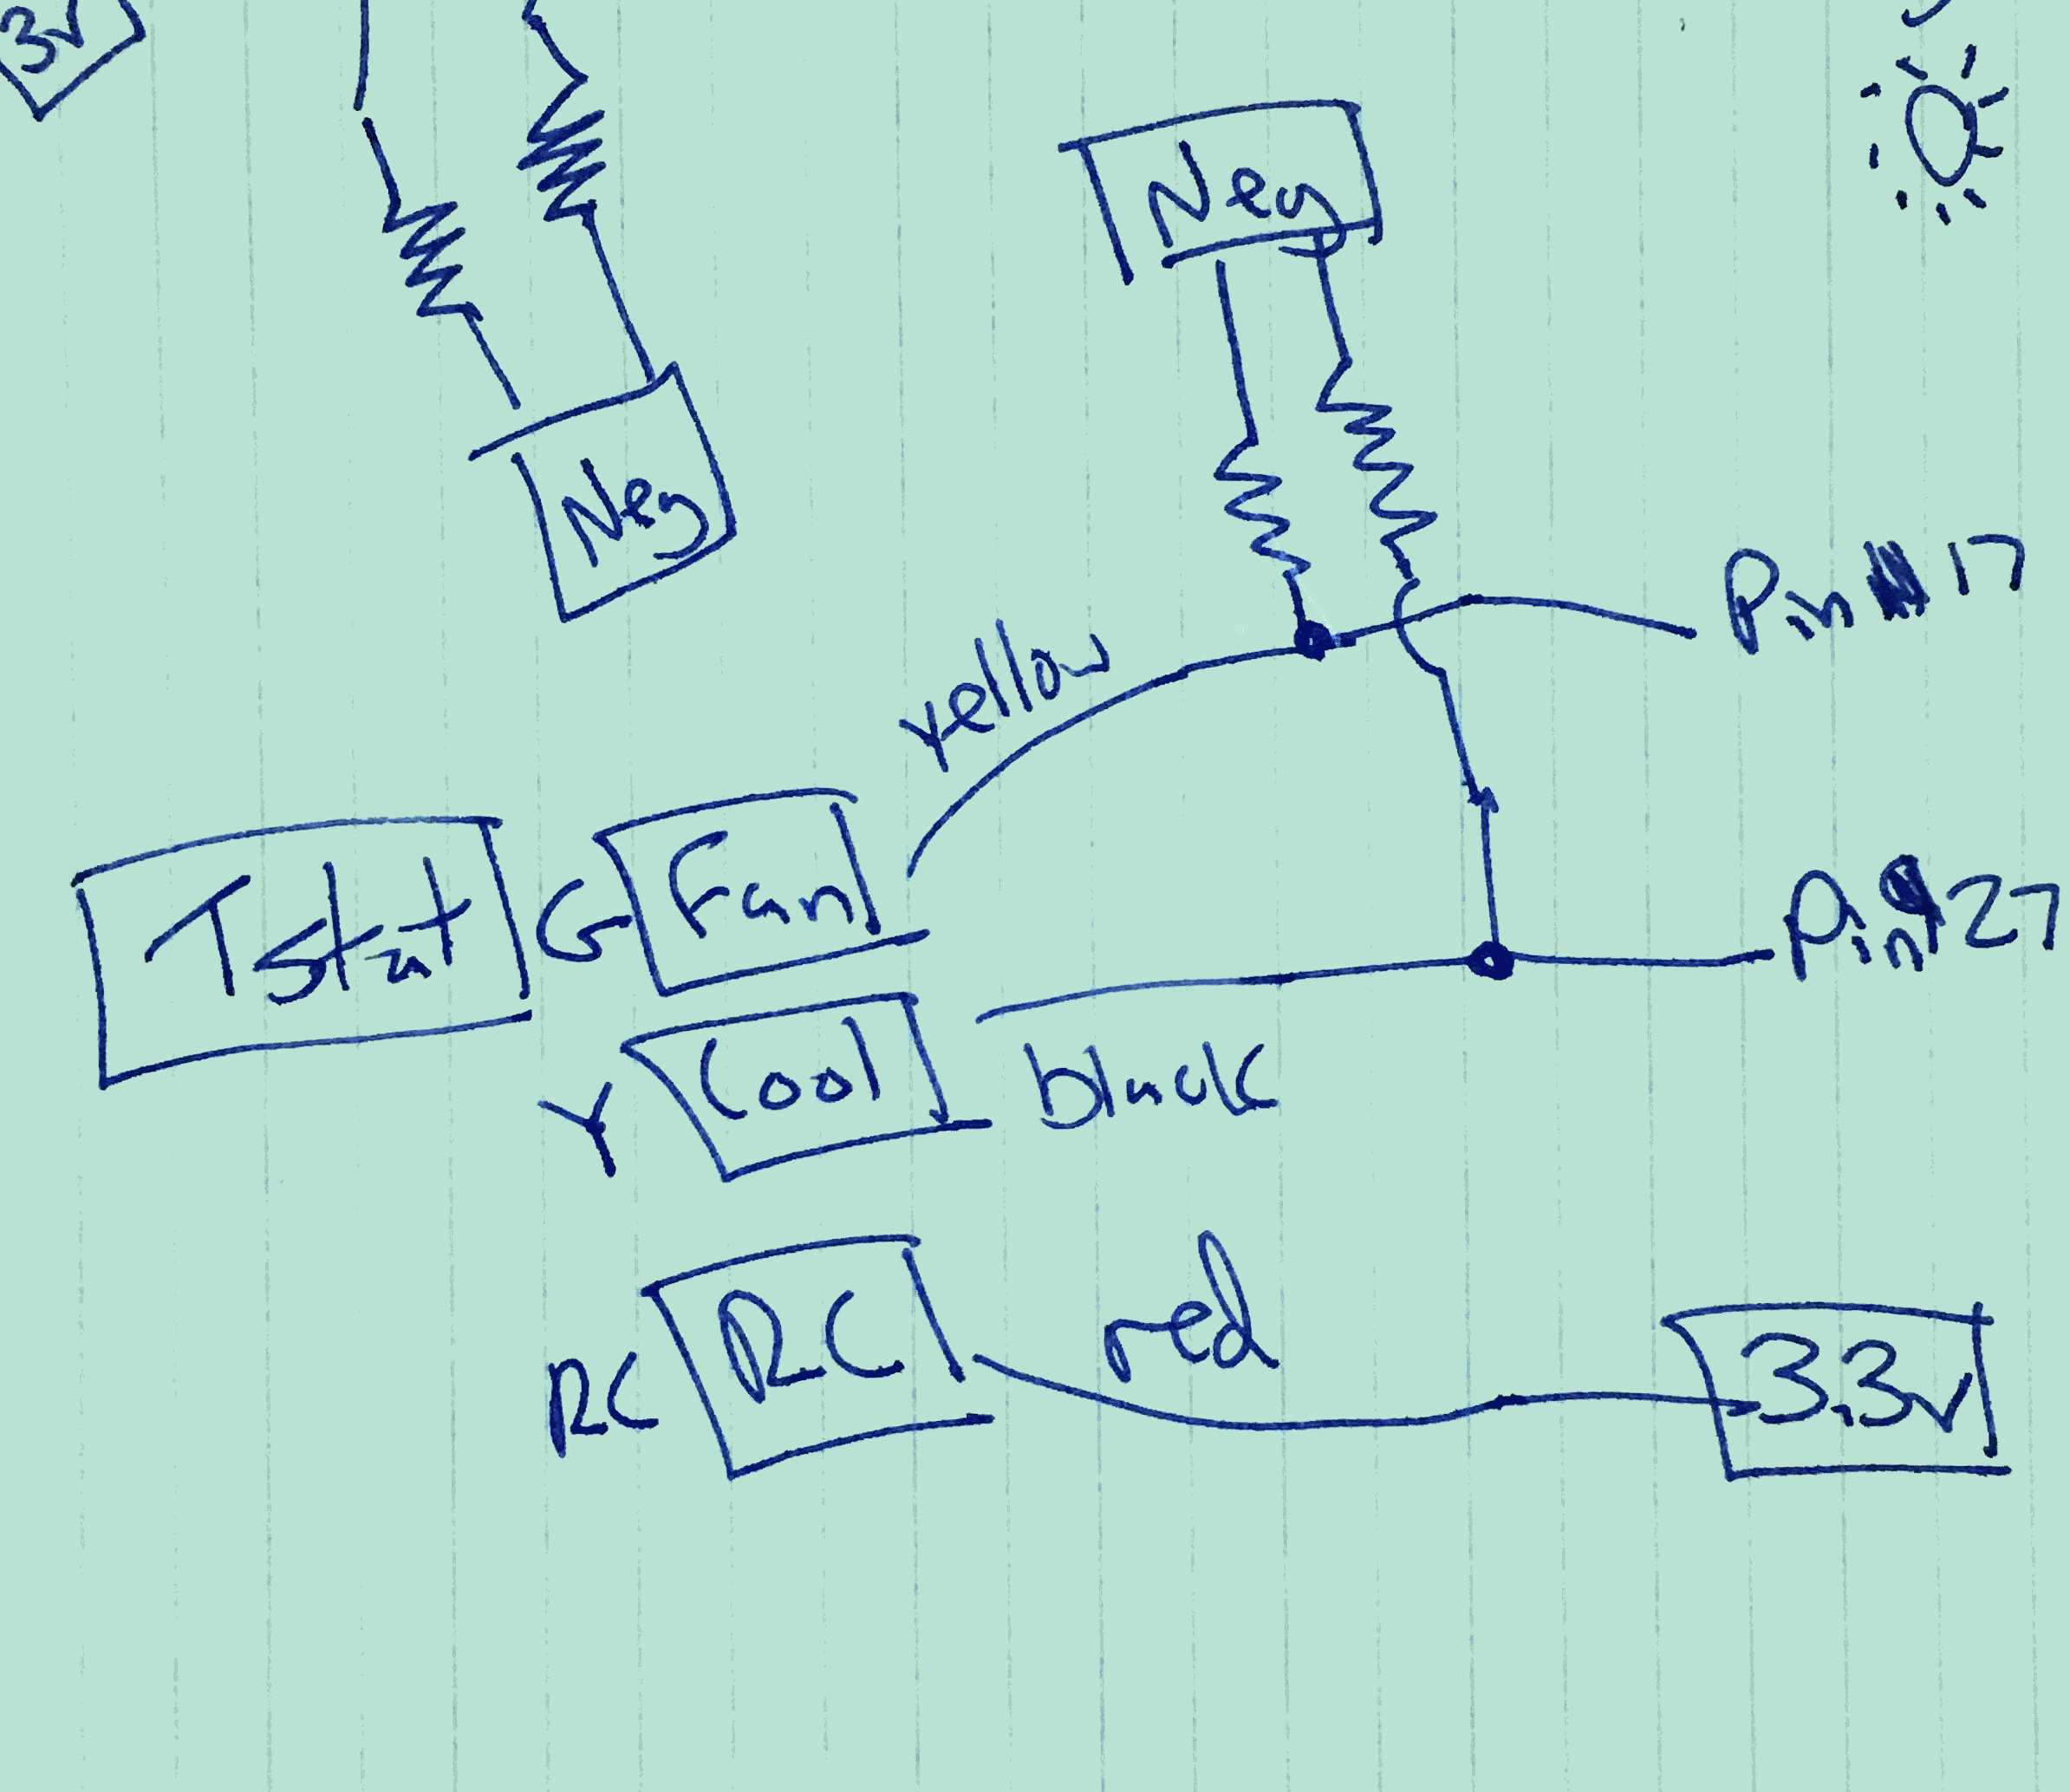 3v
Neg
Neg
Pin 17
yellow
Tstat G Fan
Pin 27
Y Cool black
RC RC red 3.3v